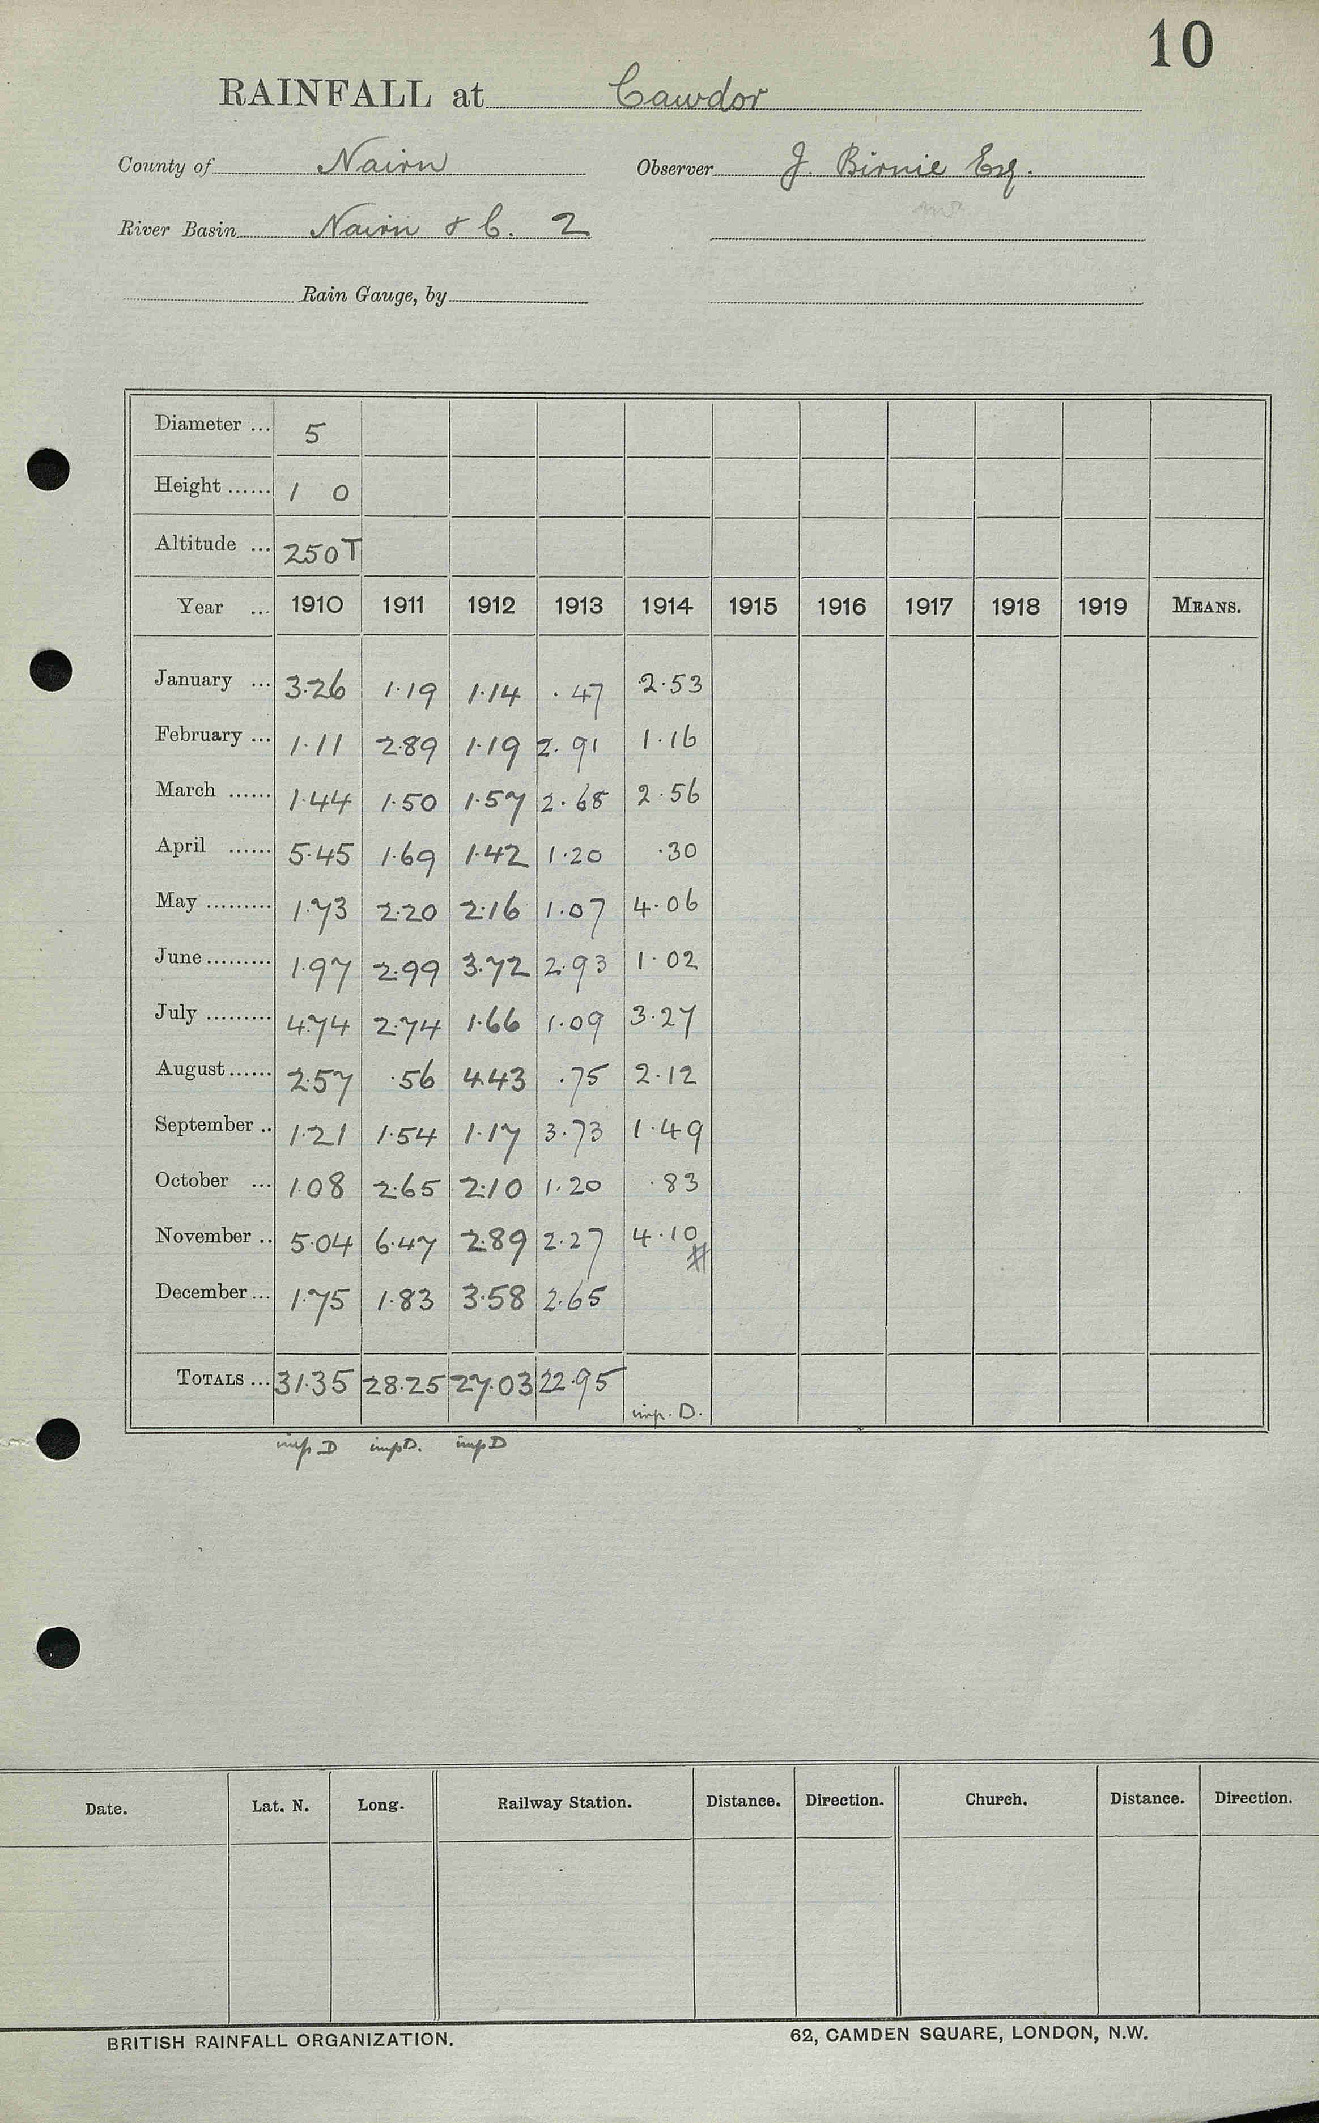 10
RAINFALL at Cawdor
County of Nairn Observer J. Birnie Esq.
River Basin Nairn & C. 2
Rain Gauge, by
Diameter ... 5
Height ...... 1 0
Altitude ... 250T
Year ... 1910 1911 1912 1913 1914 1915 1916 1917 1918 1919 MEANS.
January ... 3.26 1.19 1.14 .47 2.53
February ... 1.11 2.89 1.19 2.91 1.16
March ...... 1.44 1.50 1.57 2.68 2.56
April ...... 5.45 1.69 1.42 1.20 .30
May ......... 1.73 2.20 2.16 1.07 4.06
June ......... 1.97 2.99 3.72 2.93 1.02
July ......... 4.74 2.74 1.66 1.09 3.27
August ...... 2.57 .56 4.43 .75 2.12
September .. 1.21 1.54 1.17 3.73 1.49
October ... 1.08 2.65 2.10 1.20 .83
November .. 5.04 6.47 2.89 2.27 4.10
#
December ... 1.75 1.83 3.58 2.65
TOTALS ... 31.35 28.25 27.03 22.95
imp. D.
imp D imp D. imp D
Date. Lat. N. Long. Railway Station. Distance. Direction. Church. Distance. Direction.
BRITISH RAINFALL ORGANIZATION. 62, CAMDEN SQUARE, LONDON, N.W.